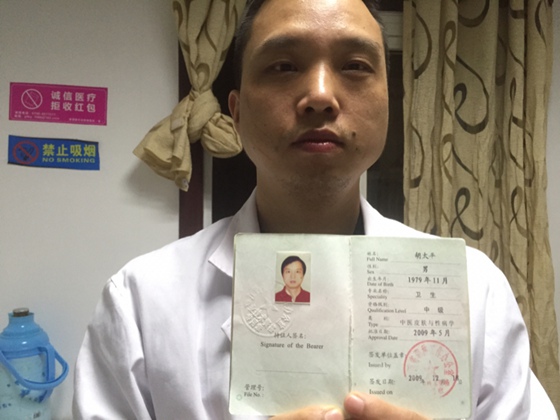 诚信医疗
拒收红包
禁止吸烟
NO SMOKING
持证人签名:
Signature of the Bearer
管理号:
File No.
姓名
Full Name
胡大平
性别
Sex
男
出生年月
Date of Birth
1979年11月
专业名称
Speciality
卫生
资格级别
Qualification Level
中级
类别
Type
中医皮肤与性病学
批准日期
Approval Date
2009年5月
签发单位盖章
Issued by
签发日期
Issued on